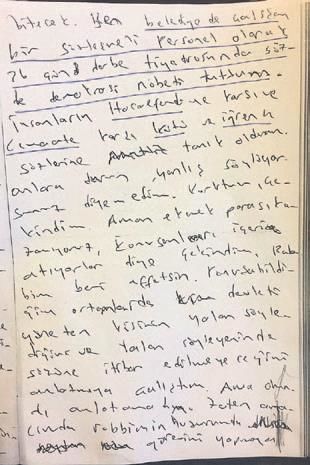 bitecek. Ben belediyede çalışan
bir sözleşmeli personel olarak
26 gün darbe tiyatrosunda söz-
de demokrasi nöbeti tuttum.
İnsanların Hocaefendiye karşı ve
Cemaate karşı kötü ve iğrenç
sözlerine tanık oldum.
onlara durun yanlış söylüyor-
sunuz diyemedim. Korktum, çe-
kindim. Aman ekmek parası ka-
zanıyoruz, konuşsam içeriye
atıyorlar diye çekindim, Rab-
bim beni affetsin. Konuşabildi-
ğim ortamlarda devleti
yöneten kişinin yalan söyle-
diğini ve yalan söyleyeninde
sözüne itibar edilmeyeceğini
anlatmaya çalıştım. Ama olma-
dı, anlatamadım. Zaten
Rabbimin huzurunda
görevini yapmayan